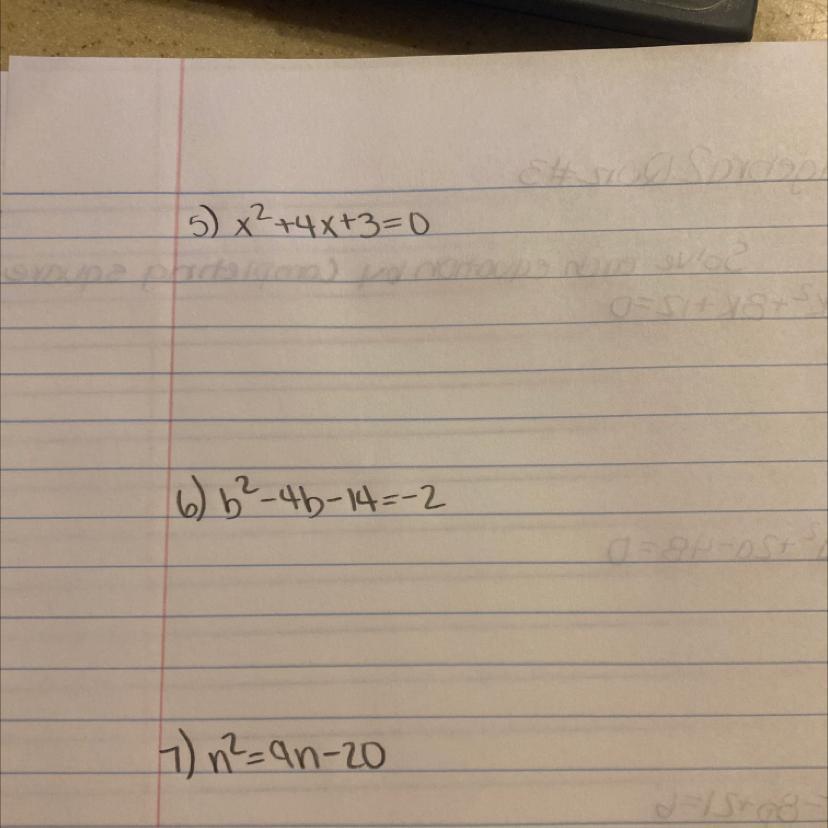 5) x²+4x+3=0
6) b²-4b-14=-2
7) n²=9n-20